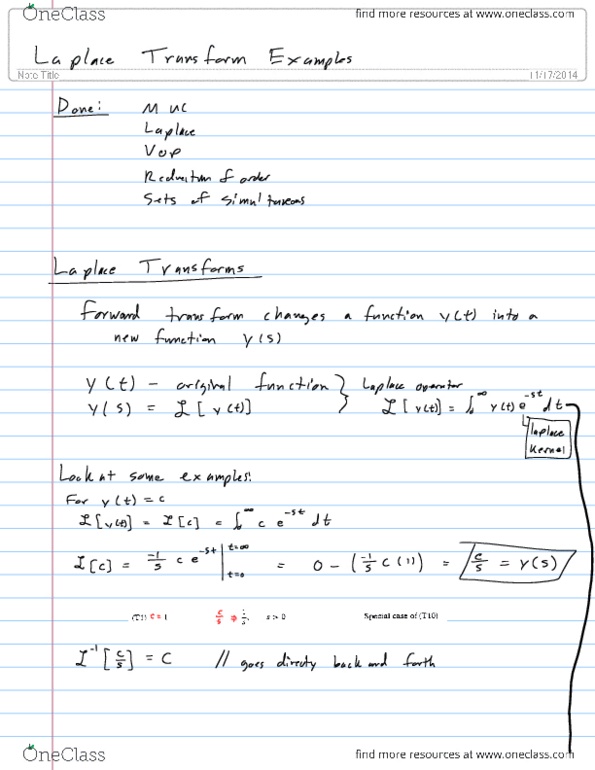 OneClass
find more resources at www.oneclass.com
Laplace Transform Examples
Note Title
11/17/2014
Done: MUC
Laplace
VOP
Reduction of order
Sets of simultaneous
Laplace Transforms
Forward transform changes a function y(t) into a
new function Y(s)
y(t) - original function } Laplace operator
Y(s) = ℒ[y(t)] ℒ[y(t)] = ∫₀^∞ y(t) e^-st dt
Laplace
Kernel
Look at some examples:
For y(t) = c
ℒ[y(t)] = ℒ[c] = ∫₀^∞ c e^-st dt
ℒ[c] = -1/s c e^-st | t=∞ t=0 = 0 - (-1/s c (1)) = c/s = Y(s)
(T1) c = 1 s > 0 Special case of (T10)
ℒ^-1[c/s] = c // goes directly back and forth
OneClass
find more resources at www.oneclass.com